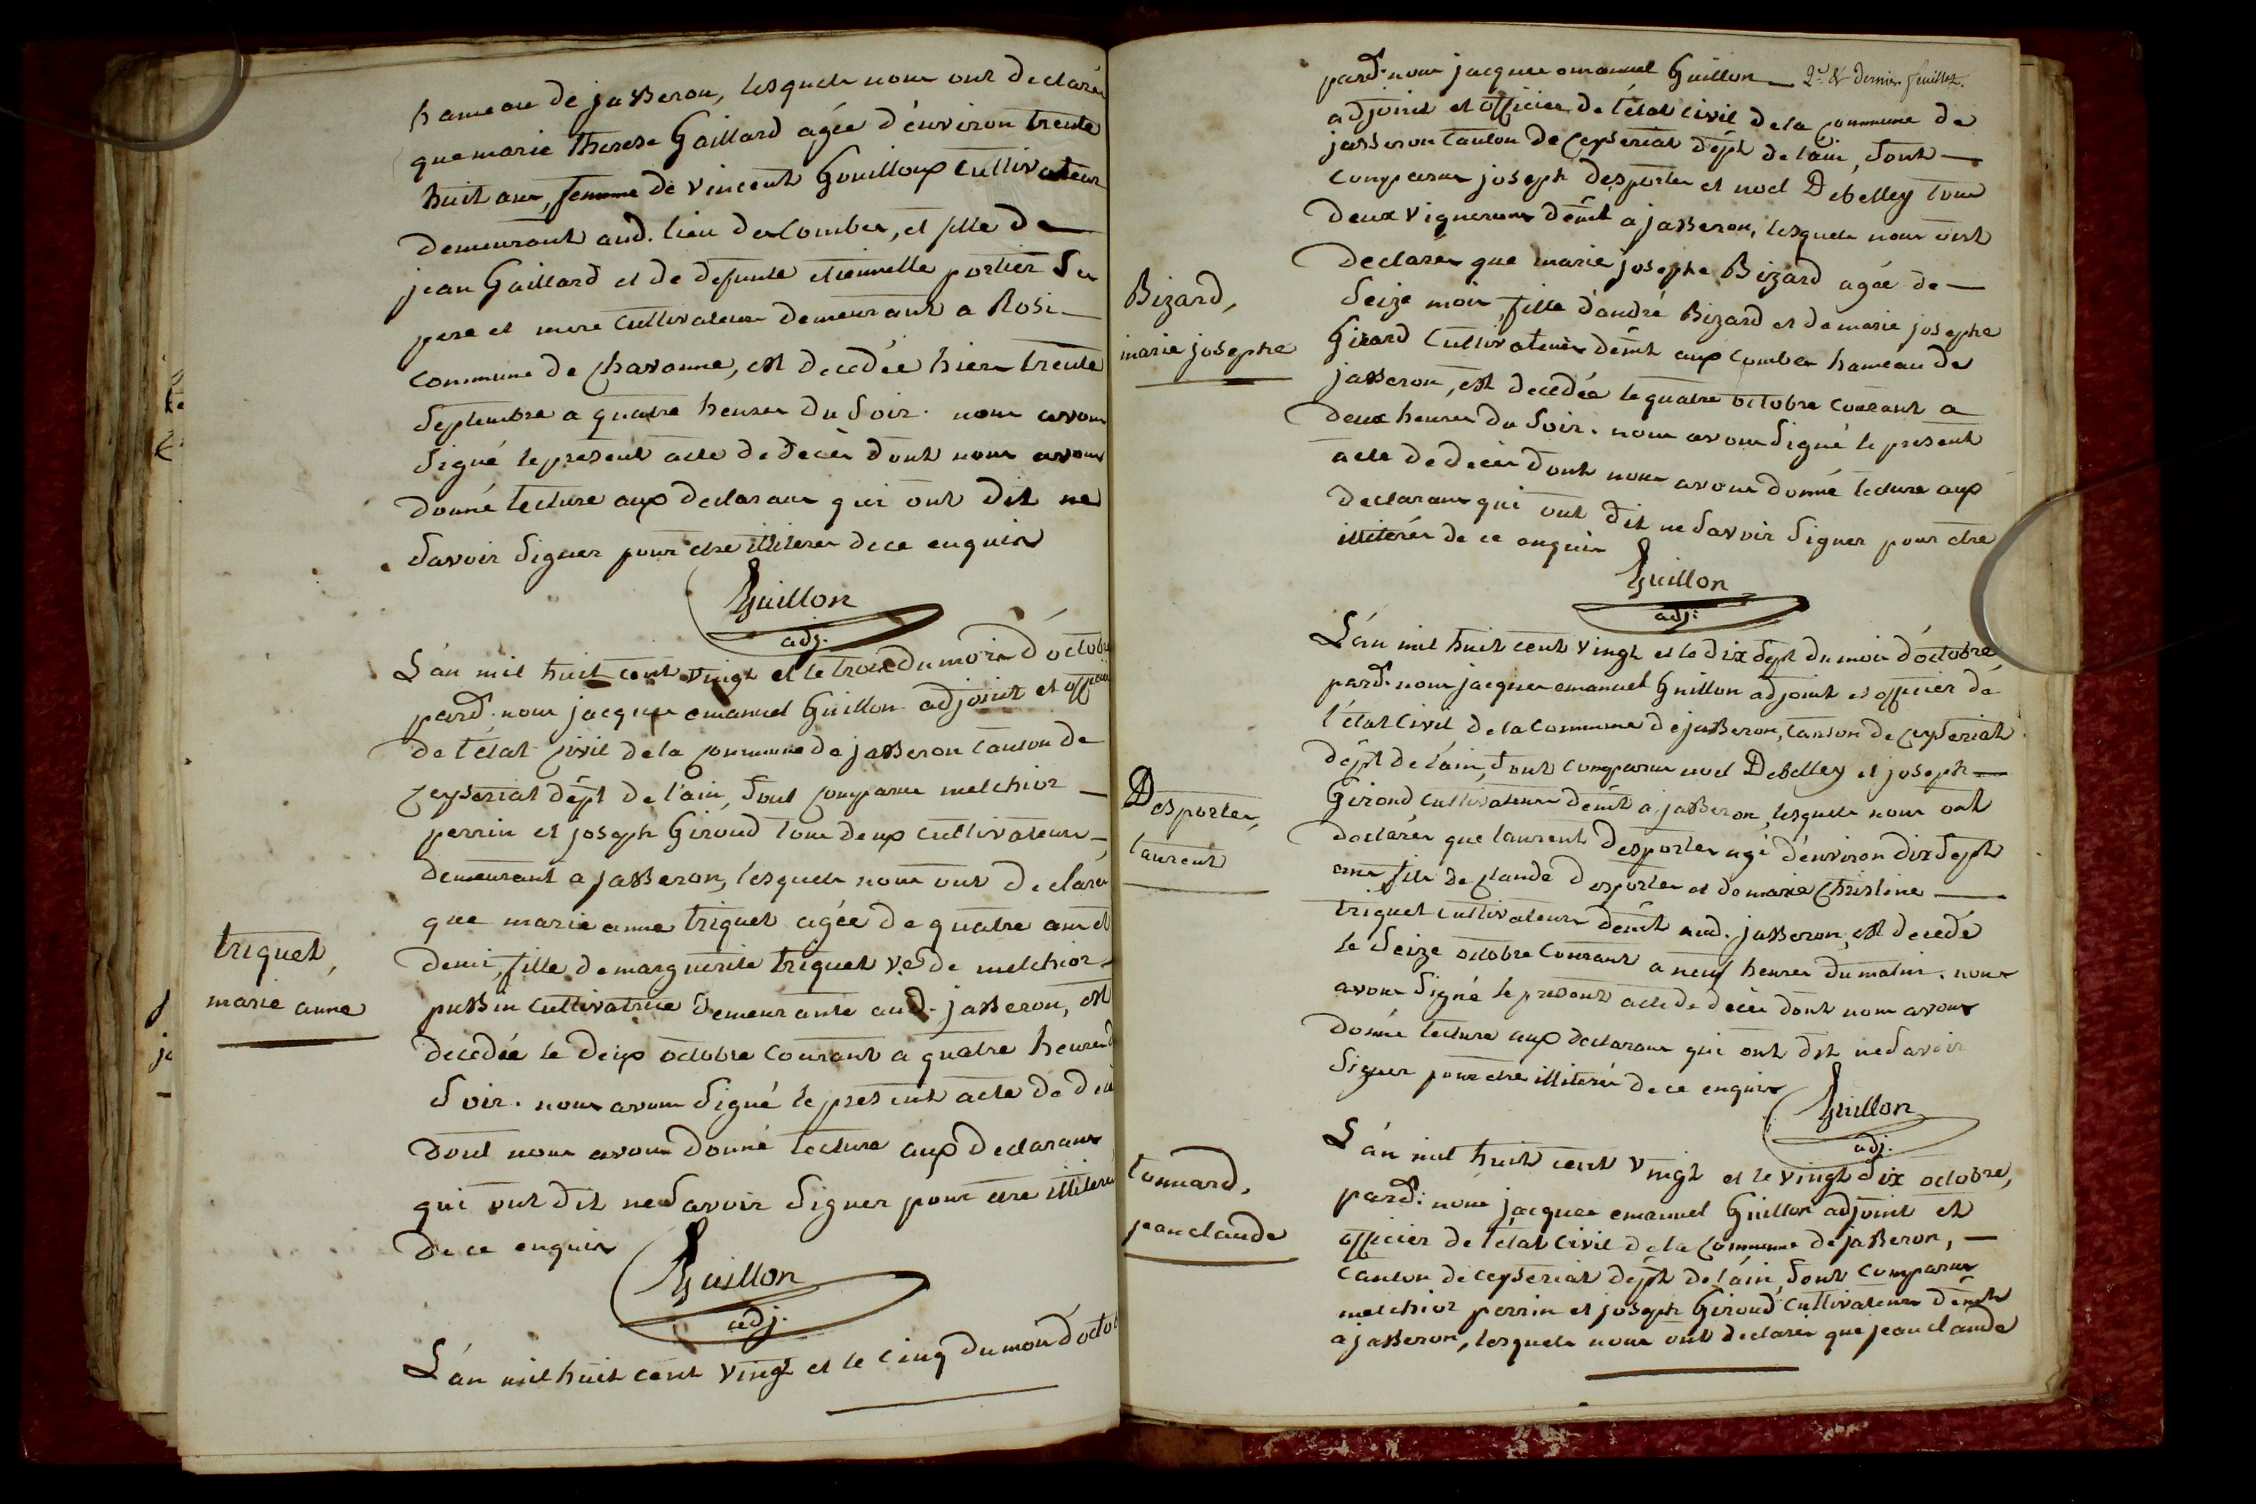 hameau de jasseron, lesquels nous ont declarés
que marie therese Gaillard agée d'environ trente
huit ans, femme de vincent Gouilloux cultivateur
demeurant aud. lieu des Combes, et fille de
jean Gaillard et de defunte etiennette portier ses
pere et mere cultivateurs demeurant a Rosi
commune de Chavanne, est decedée hier trente
septembre a quatre heures du soir. nous avons
signé le présent acte de decès dont nous avons
donné lecture aux declarans qui ont dit ne
savoir signer pour etre illiterés de ce enquis
Guillon
adj.
L'an mil huit cent vingt et le trois du mois d'octobre
pard. nous jacques emanuel Guillon adjoint et officier
de l'état civil de la Commune de jasseron canton de
Ceyseriat dépt de l'ain, sont comparus melchior
perrin et joseph Giroud tous deux cultivateurs
demeurant a jasseron, lesquels nous ont declarés
triquet,
marie anne
que marie anne triquet agée de quatre ans et
demi, fille de marguerite triquet ve de melchior
pussin cultivatrice demeurante aud. jasseron, est
decedée le deux octobre courant a quatre heures d
soir. nous avons signé le present acte de decè
dont nous avons donné lecture aux declarans
qui ont dit ne savoir signer pour etre illiterés
de ce enquis
Guillon
adj.
L'an mil huit cent vingt et le cinq du mois d'octob
pard. nous jacques emanuel Guillon 2e & dernier feuillet.
adjoint et officier de l'état civil de la Commune de
jasseron canton de Ceyseriat dépt de l'ain, sont
comparus joseph desportes et noel Debelley tous
deux vignerons demt a jasseron, lesquels nous ont
declarés que marie josephe Bizard agée de
Bizard,
marie josephe
seize mois, fille d'andré Bizard et de marie josephe
Girard cultivateurs demt aux combes hameau de
jasseron, est decedée le quatre octobre courant a
deux heures du soir. nous avons signé le present
acte de decès dont nous avons donné lecture aux
declarans qui ont dit ne savoir signer pour etre
illiterés de ce enquis
Guillon
adj:
L'an mil huit cent vingt et le dix sept du mois d'octobre
pard. nous jacques emanuel Guillon adjoint et officier de
l'état civil de la Commune de jasseron, canton de ceyseriat
dépt de l'ain, sont comparus noel Debelley et joseph
Desportes,
laurent
Giroud cultivateurs demt a jasseron, lesquels nous ont
declarés que laurent desportes agé d'environ dix sept
ans fils de claude desportes et de marie Christine
triquet cultivateurs demt aud. jasseron, est decedé
le seize octobre courant a neuf heures du matin. nous
avons signé le present acte de decès dont nous avons
donné lecture aux declarans qui ont dit ne savoir
signer pour etre illiterés de ce enquis
Guillon
adj.
L'an mil huit cent vingt et le vingt dix octobre,
tonnard,
jean claude
pard. nous jacques emanuel Guillon adjoint et
officier de l'état civil de la Commune de jasseron,
canton de ceyseriat dépt de l'ain, sont comparus
melchior perrin et joseph Giroud cultivateurs demt
a jasseron, lesquels nous ont declarés que jean claude